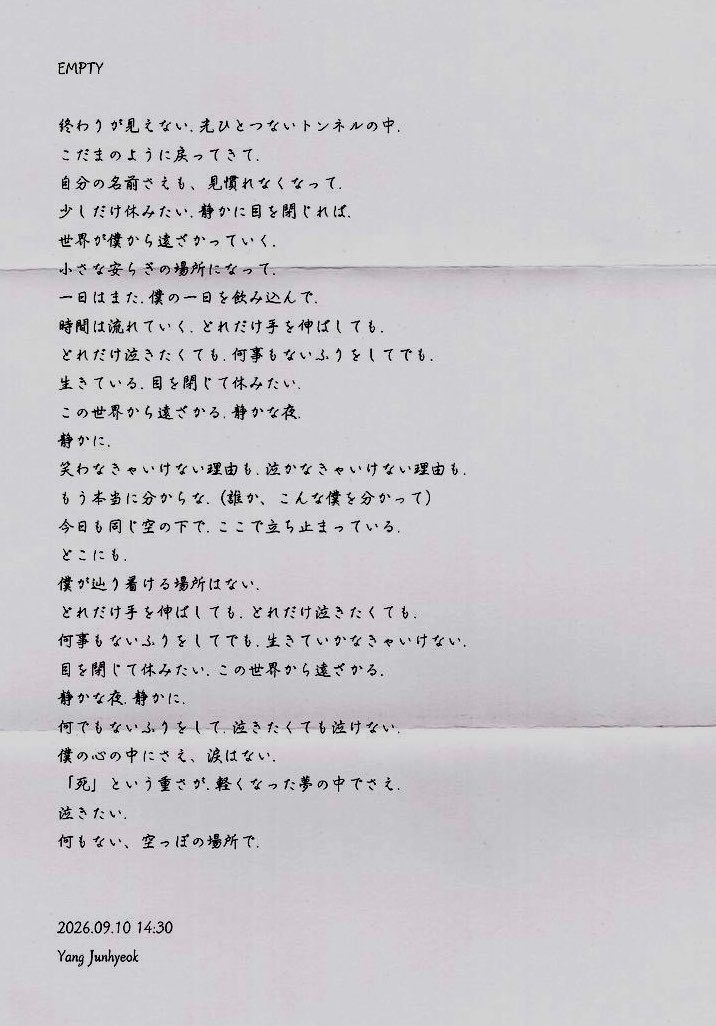 EMPTY
終わりが見えない. 光ひとつないトンネルの中.
こだまのように戻ってきて.
自分の名前さえも、見慣れなくなって.
少しだけ休みたい. 静かに目を閉じれば.
世界が僕から遠ざかっていく.
小さな安らぎの場所になって.
一日はまた. 僕の一日を飲み込んで.
時間は流れていく. どれだけ手を伸ばしても.
どれだけ泣きたくても. 何事もないふりをしてでも.
生きている. 目を閉じて休みたい.
この世界から遠ざかる. 静かな夜.
静かに.
笑わなきゃいけない理由も. 泣かなきゃいけない理由も.
もう本当に分からな. (誰か、こんな僕を分かって)
今日も同じ空の下で. ここで立ち止まっている.
どこにも.
僕が辿り着ける場所はない.
どれだけ手を伸ばしても. どれだけ泣きたくても.
何事もないふりをしてでも. 生きていかなきゃいけない.
目を閉じて休みたい. この世界から遠ざかる.
静かな夜. 静かに.
何でもないふりをして. 泣きたくても泣けない.
僕の心の中にさえ、涙はない.
「死」という重さが. 軽くなった夢の中でさえ.
泣きたい.
何もない、空っぽの場所で.
2026.09.10 14:30
Yang Junhyeok